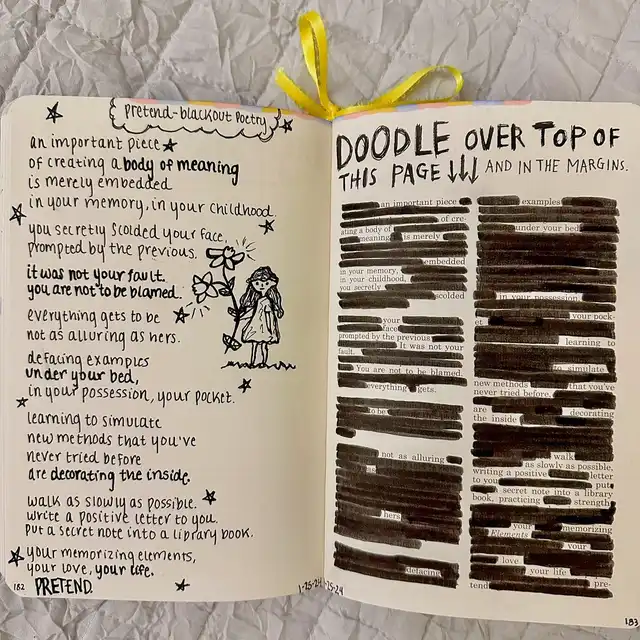 Pretend-Blackout Poetry
an important piece
of creating a body of meaning
is merely embedded
in your memory, in your childhood.
you secretly scolded your face,
prompted by the previous.
it was not your fault.
you are not to be blamed.
everything gets to be
not as alluring as hers.
defacing examples
under your bed,
in your possession, your pocket.
learning to simulate
new methods that you've
never tried before
are decorating the inside.
walk as slowly as possible.
write a positive letter to you.
put a secret note into a library book.
your memorizing elements,
your love, your life.
PRETEND.
182
DOODLE OVER TOP OF
THIS PAGE AND IN THE MARGINS.
an important piece
of cre-
ating a body of
meaning is merely
embedded
in your memory,
in your childhood,
you secretly
scolded
your
face
prompted by the previous
It was not your
fault.
You are not to be blamed.
everything gets.
to be
not as alluring
as
hers
defacing
examples
under your bed
in your possession
your pock-
et
learning to
to simulate
new methods that you've
never tried before.
are decorating
the inside
walk
as slowly as possible,
writing a positive letter
to you put
a secret note into a library
book, practicing strength
your memorizing
Elements
your
love
your life
pre-
tend
183